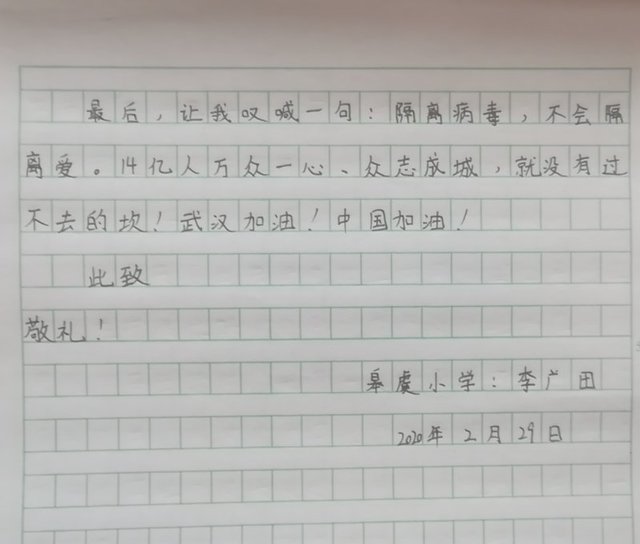 最后，让我叹喊一句：隔离病毒，不会隔
离爱。14亿人万众一心、众志成城，就没有过
不去的坎！武汉加油！中国加油！
此致
敬礼！
皋虞小学：李广田
2020年2月29日